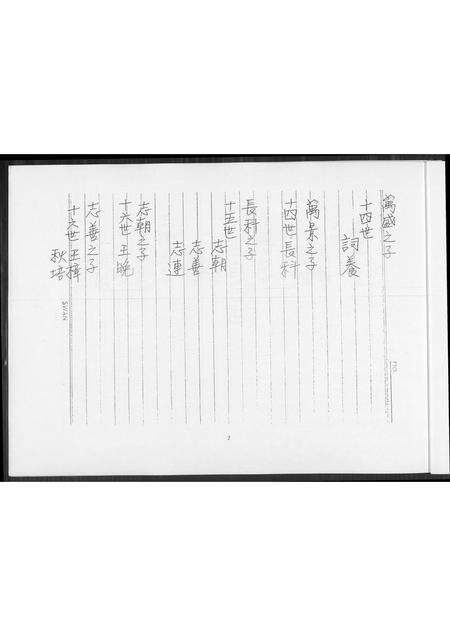 萬盛之子
十四世
詞養
萬景之子
十四世長科
長科之子
十五世
志朝
志善
志連
志朝之子
十六世王晚
志善之子
十六世王梓
秋培
SWAN
NO.